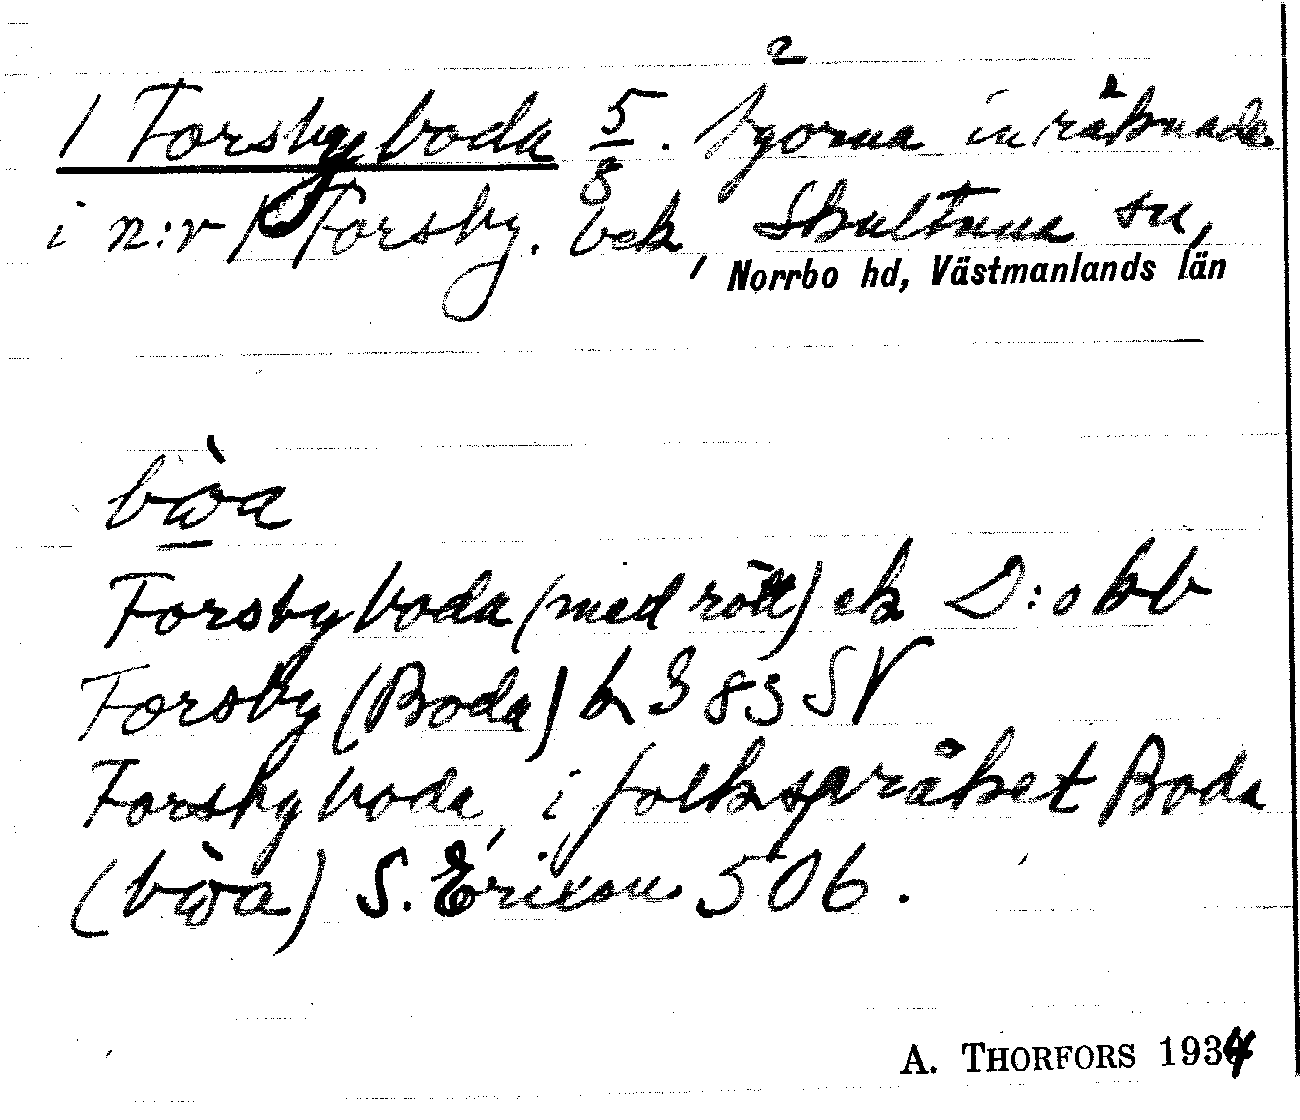 2
1 Forsbyboda 5/8. Ägorna inräknade
i n:r 1 Forsby. bek, Skultuna sn,
Norrbo hd, Västmanlands län
Forsbyboda (med rött) ek D:o bb
Forsby (Boda) b 383 SV
Forsbyboda, i folkspråket Boda
S. Erixon 506.
A. THORFORS 1934